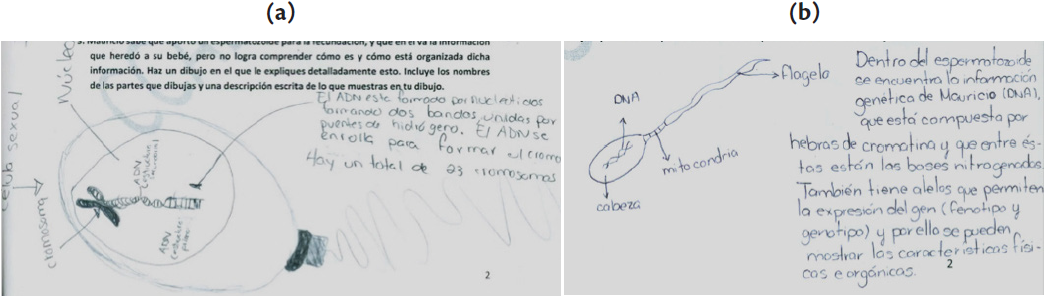 (a)
(b)
5. Mauricio sabe que aportó un espermatozoide para la fecundación, y que en él va la información
que heredó a su bebé, pero no logra comprender cómo es y cómo está organizada dicha
información. Haz un dibujo en el que le expliques detalladamente esto. Incluye los nombres
de las partes que dibujas y una descripción escrita de lo que muestras en tu dibujo.
Núcleo
sexual
cromosoma
ADN
ADN
El ADN este formado por nucleotidos
formando dos bandas unidas por
puentes de hidrógeno. El ADN se
enrolla para formar el cromo
Hay un total de 23 cromosomas
2
DNA
flagelo
mitocondria
cabeza
Dentro del espermatozoide
se encuentra la información
genética de Mauricio (DNA),
que está compuesta por
hebras de cromatina y que entre és-
tas están las bases nitrogenadas.
También tiene alelos que permiten
la expresión del gen (fenotipo y
genotipo) y por ello se pueden
mostrar las características físi-
cas e orgánicas.
2